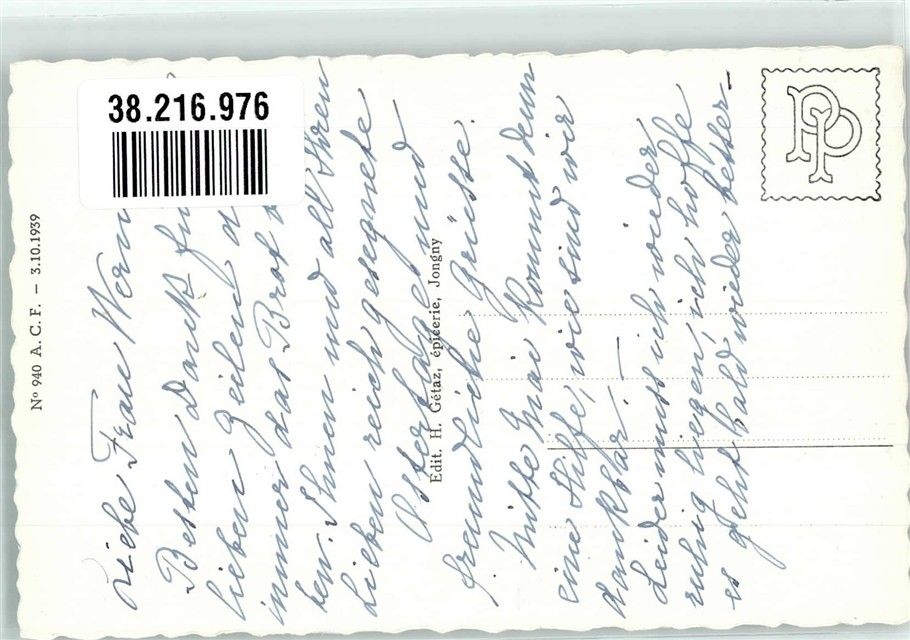 38.216.976
Nº 940 A. C. F. — 3.10.1939
Liebe Frau
Besten Dank
lieben Zeilen
immer das Brot
ten. Ihnen und all Ihren
Lieben reich gesegnete
Ostertage und
freundliche Grüsse.
Mitte Mai kommt dann
eine Hilfe, wie sind wir
dankbar. —
Leider muss ich wieder
ruhig liegen, ich hoffe
es geht bald wieder besser.
Edit. H. Gétaz, épicerie, Jongny
PP